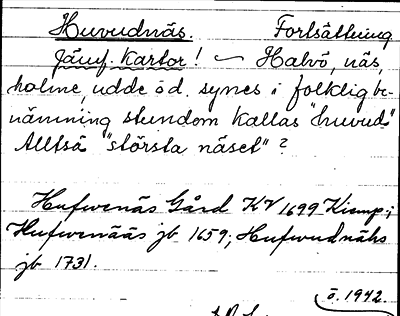 Huvudnäs. Fortsättning
Jämf. Kartor! ~ Halvö, näs,
holme, udde o d. synes i folklig be-
nämning stundom kallas "huvud"
Alltså "största näset"?
Hufwenäs Gård KV 1699 Kinnp;
Hufwenääs jb 1659; Hufwudnähs
jb 1731.
ö. 1942.